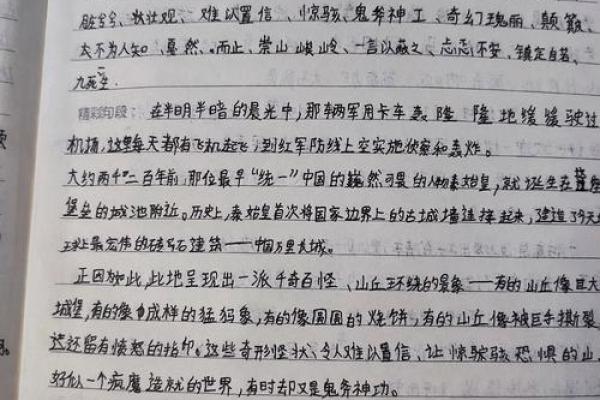 壮观、难以置信、惊骇、鬼斧神工、奇幻瑰丽、颠簸、
大不为人知。戛然。而止、崇山峻岭、一言以蔽之、忐忑不安、镇定自若、
九死
精彩句段： 在半明半暗的晨光中，那辆军用卡车轰隆隆地缓缓驶过
机场，这里每天都有飞机起飞，到红军防线上空实施侦察和轰炸。
大约两千二百年前，那位最早“统一”中国的巍然可畏的人物秦始皇，就诞生在
堡垒的城池附近。历史上，秦始皇首次将国家边界上的古城墙连接起来，建造了今天
球上最宏伟的砖石建筑——中国万里长城。
正因如此，此地呈现出一派千奇百怪、山丘环绕的景象——有的山丘像巨大
城堡，有的像成样的猛犸象，有的像圆圆的烧饼，有的山丘像被巨手撕裂
还留有愤怒的指印。这些奇形怪状、令人难以置信、让惊骇恐惧的山
好似一个疯魔造就的世界，有时却又是鬼斧神功。